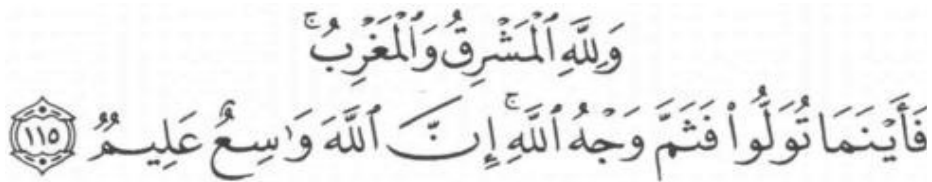 وَلِلَّهِ ٱلْمَشْرِقُ وَٱلْمَغْرِبُ ۚ
فَأَيْنَمَا تُوَلُّوا۟ فَثَمَّ وَجْهُ ٱللَّهِ ۚ إِنَّ ٱللَّهَ وَٰسِعٌ عَلِيمٌ ١١٥